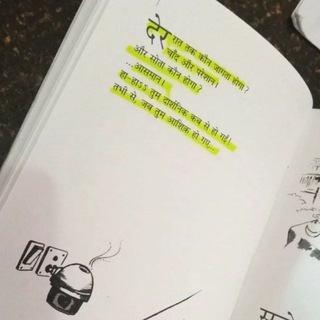 देर रात तक कौन जागता होगा?
चाँद और परेशान।
और सोता कौन होगा?
...आसमान।
हा-हाss तुम दार्शनिक कब से हो गईं।
तभी से, जब तुम आशिक हो गए...